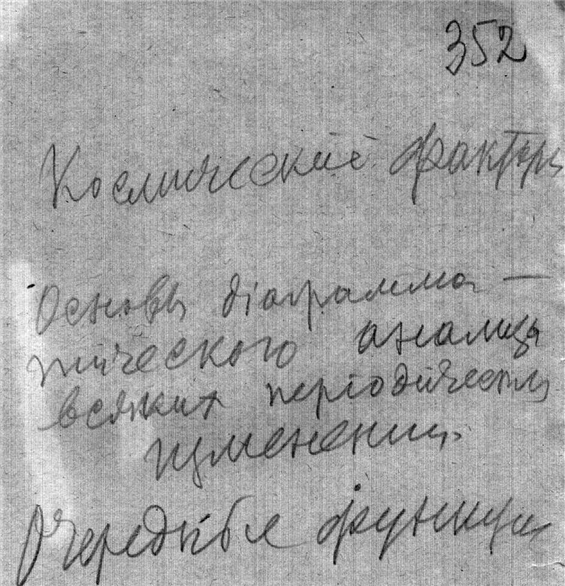 352
Космический фактор
Основы діаграмма-
тического анализа
всяких періодических
изменений.
функции